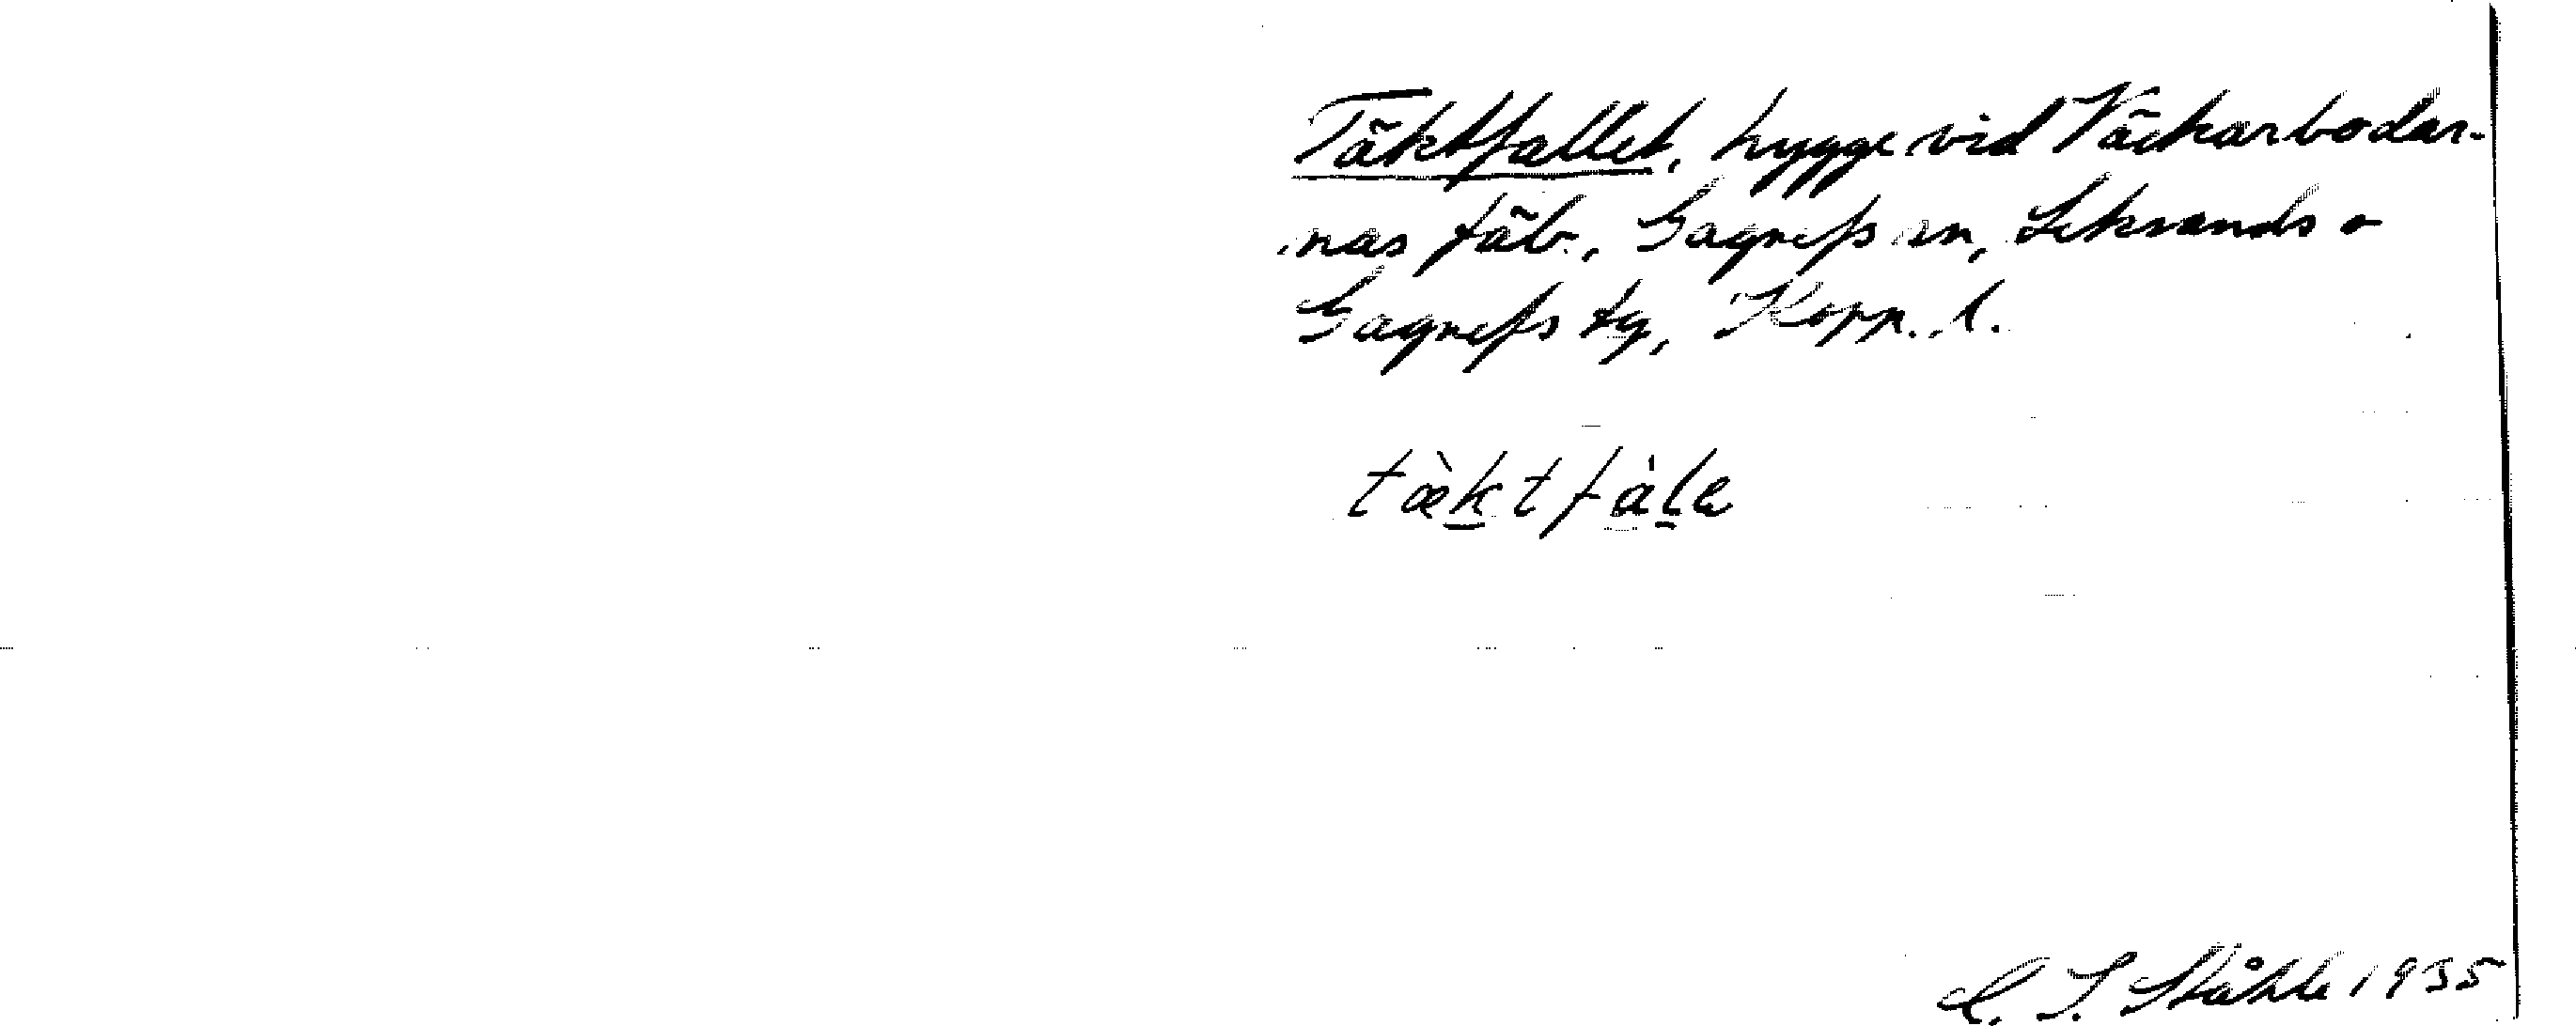 Täktfallet, hygge vid Väckarbodar-
nas fäb., Gagnefs sn, Leksands o
Gagnefs tg, Kopp. l.
tæ̀ktfàla
C. I. Ståhle 1935